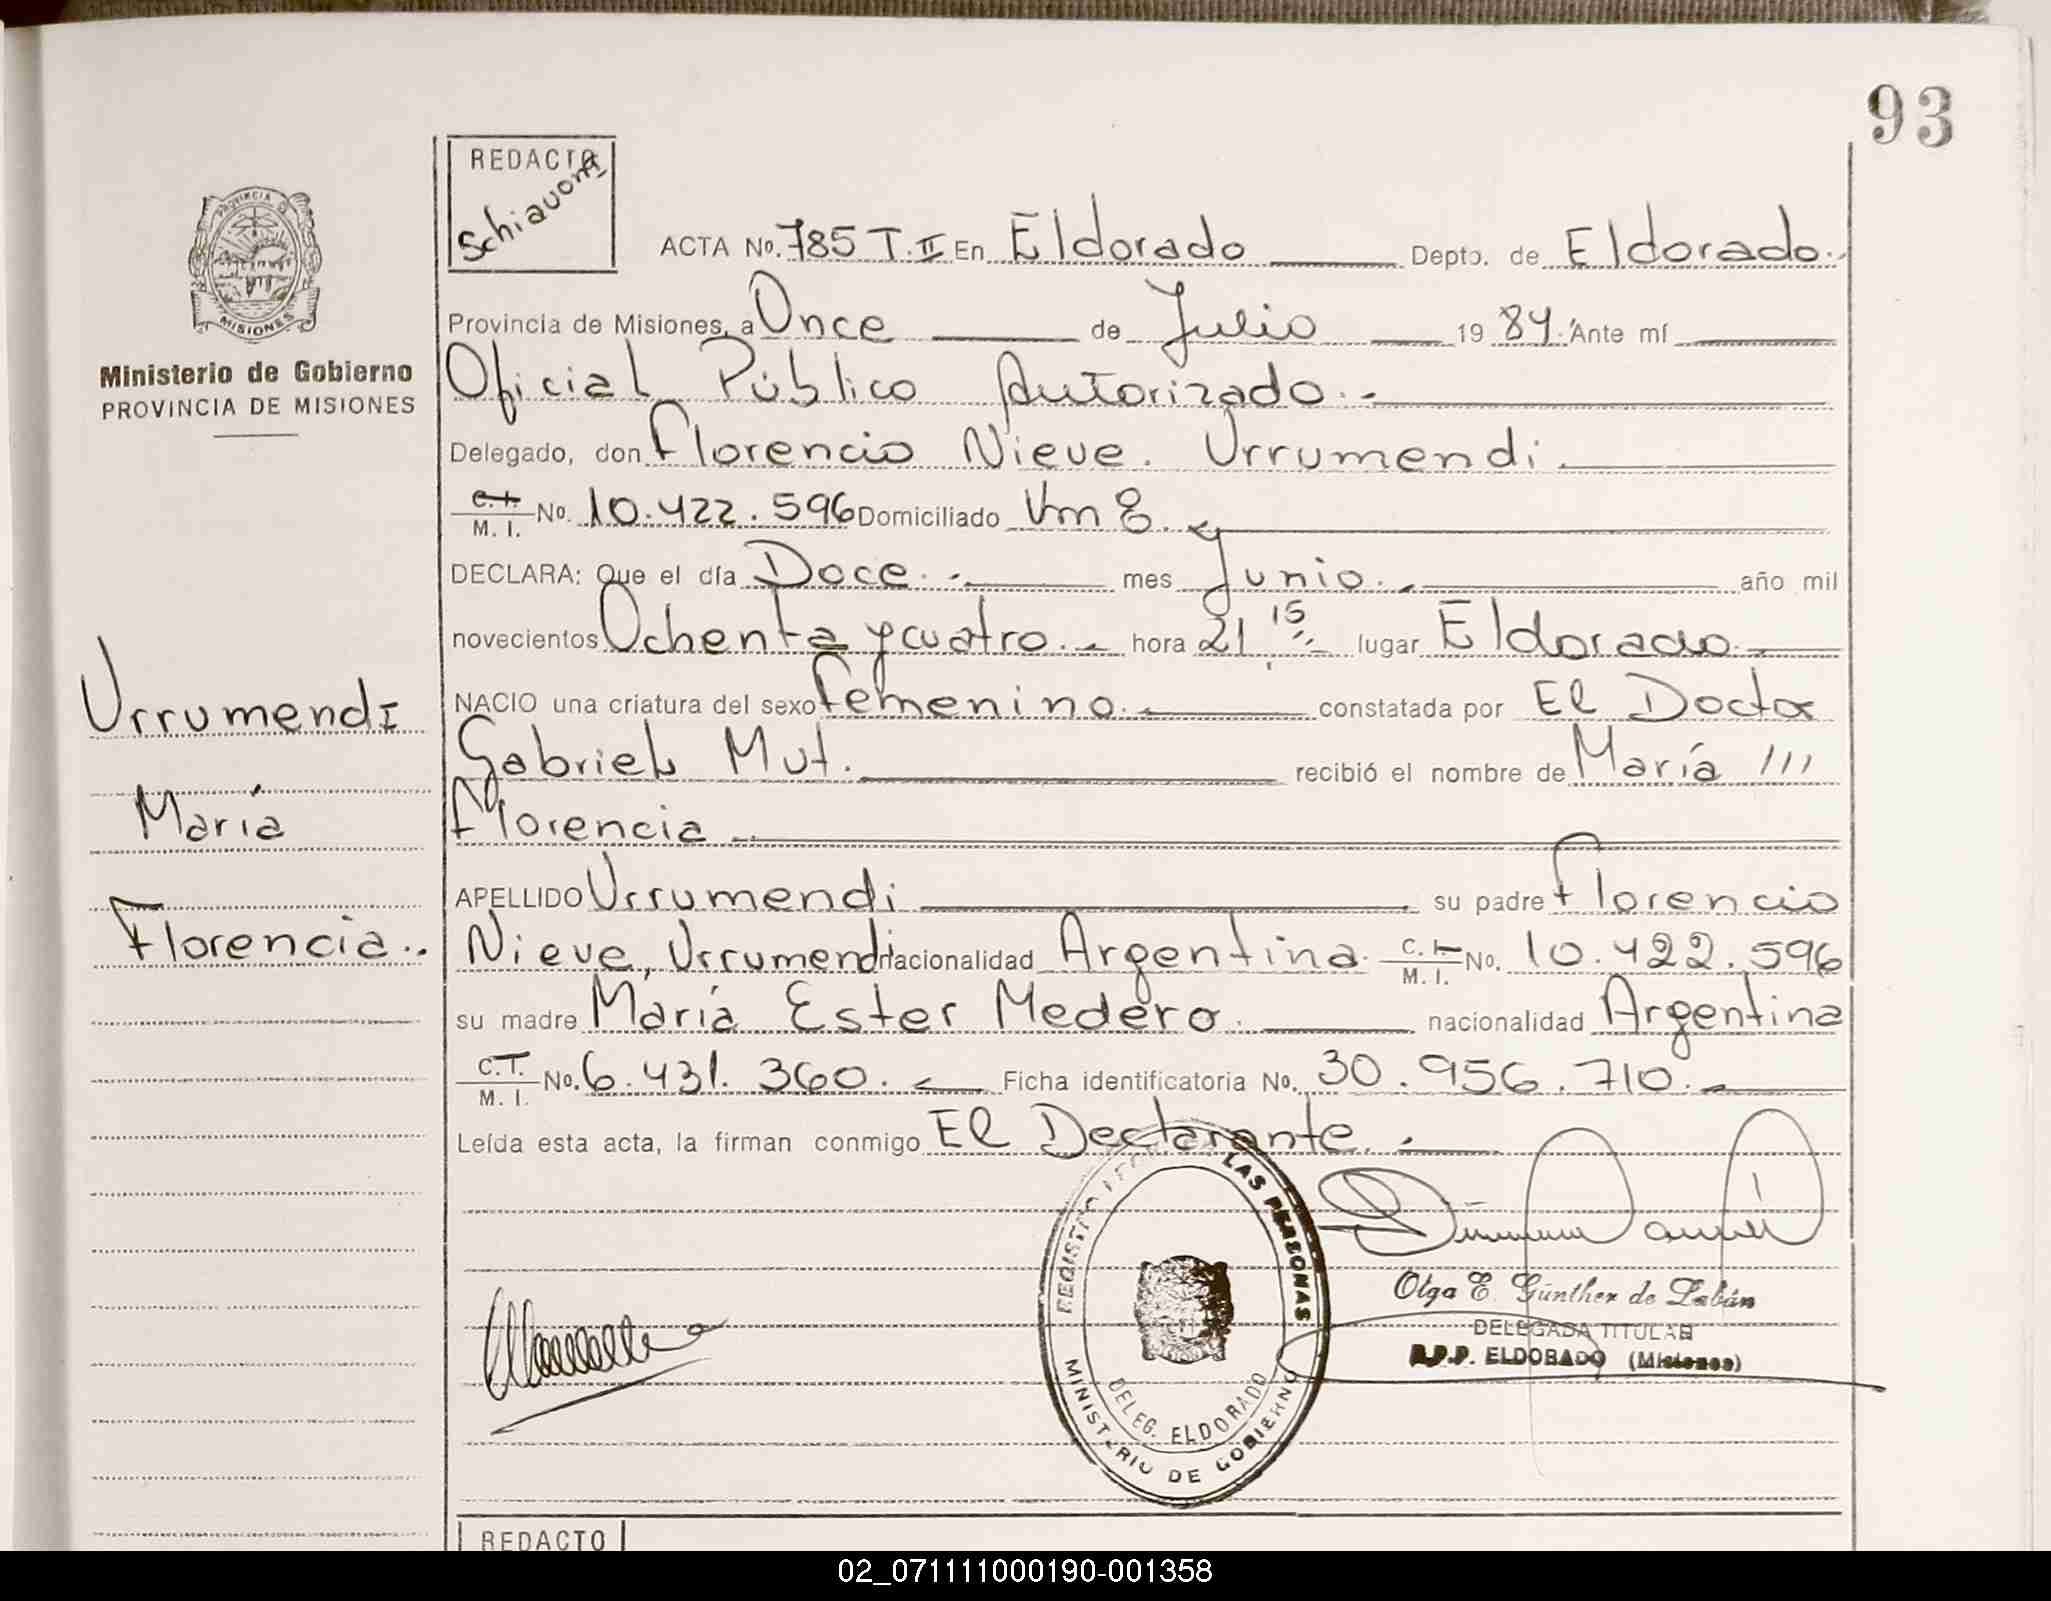 93
REDACTO
Schiavoni
PROVINCIA D
MISIONES
Ministerio de Gobierno
PROVINCIA DE MISIONES
ACTA No. 785 T. II En Eldorado Depto. de Eldorado.
Provincia de Misiones, a Once de Julio 19 84. Ante mí
Oficial Público Autorizado.
Delegado, don Florencio Nieve. Urrumendi
C.I. M. I. No. 10.422.596 Domiciliado Km 8.
DECLARA: Que el día Doce. mes Junio. año mil
novecientos Ochenta y cuatro. hora 21 15 lugar Eldorado.
NACIO una criatura del sexo femenino. constatada por El Doctor
Gabriel Mut. recibió el nombre de María
Florencia
APELLIDO Urrumendi su padre Florencio
Nieve, Urrumendi nacionalidad Argentina. C.I. M. I. No. 10.422.596
su madre María Ester Medero. nacionalidad Argentina
C.I. M. I. No. 6.431.360. Ficha identificatoria No. 30.956.710.
Leída esta acta, la firman conmigo El Declarante.
Urrumendi
María
Florencia..
LAS PERSONAS
MINISTERIO DE GOBIERNO
DELEG. ELDORADO
Olga E. Günther de Labán
DELEGADA TITULAR
R.P.P. ELDORADO (Misiones)
REDACTO
02_071111000190-001358